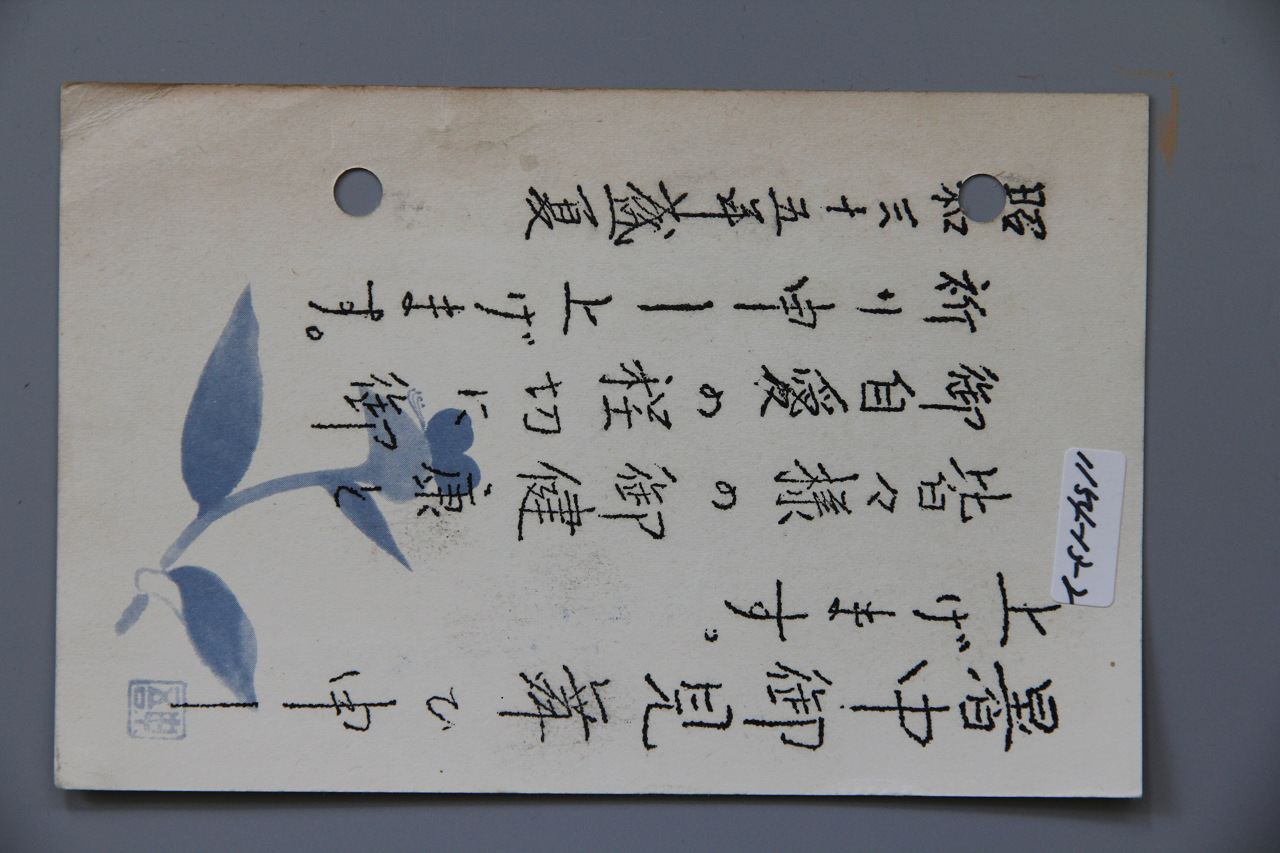 暑中御見舞ひ申し
上げます。
皆々様の御健康と
御自愛の程切に御
祈り申し上げます。
昭和三十五年盛夏